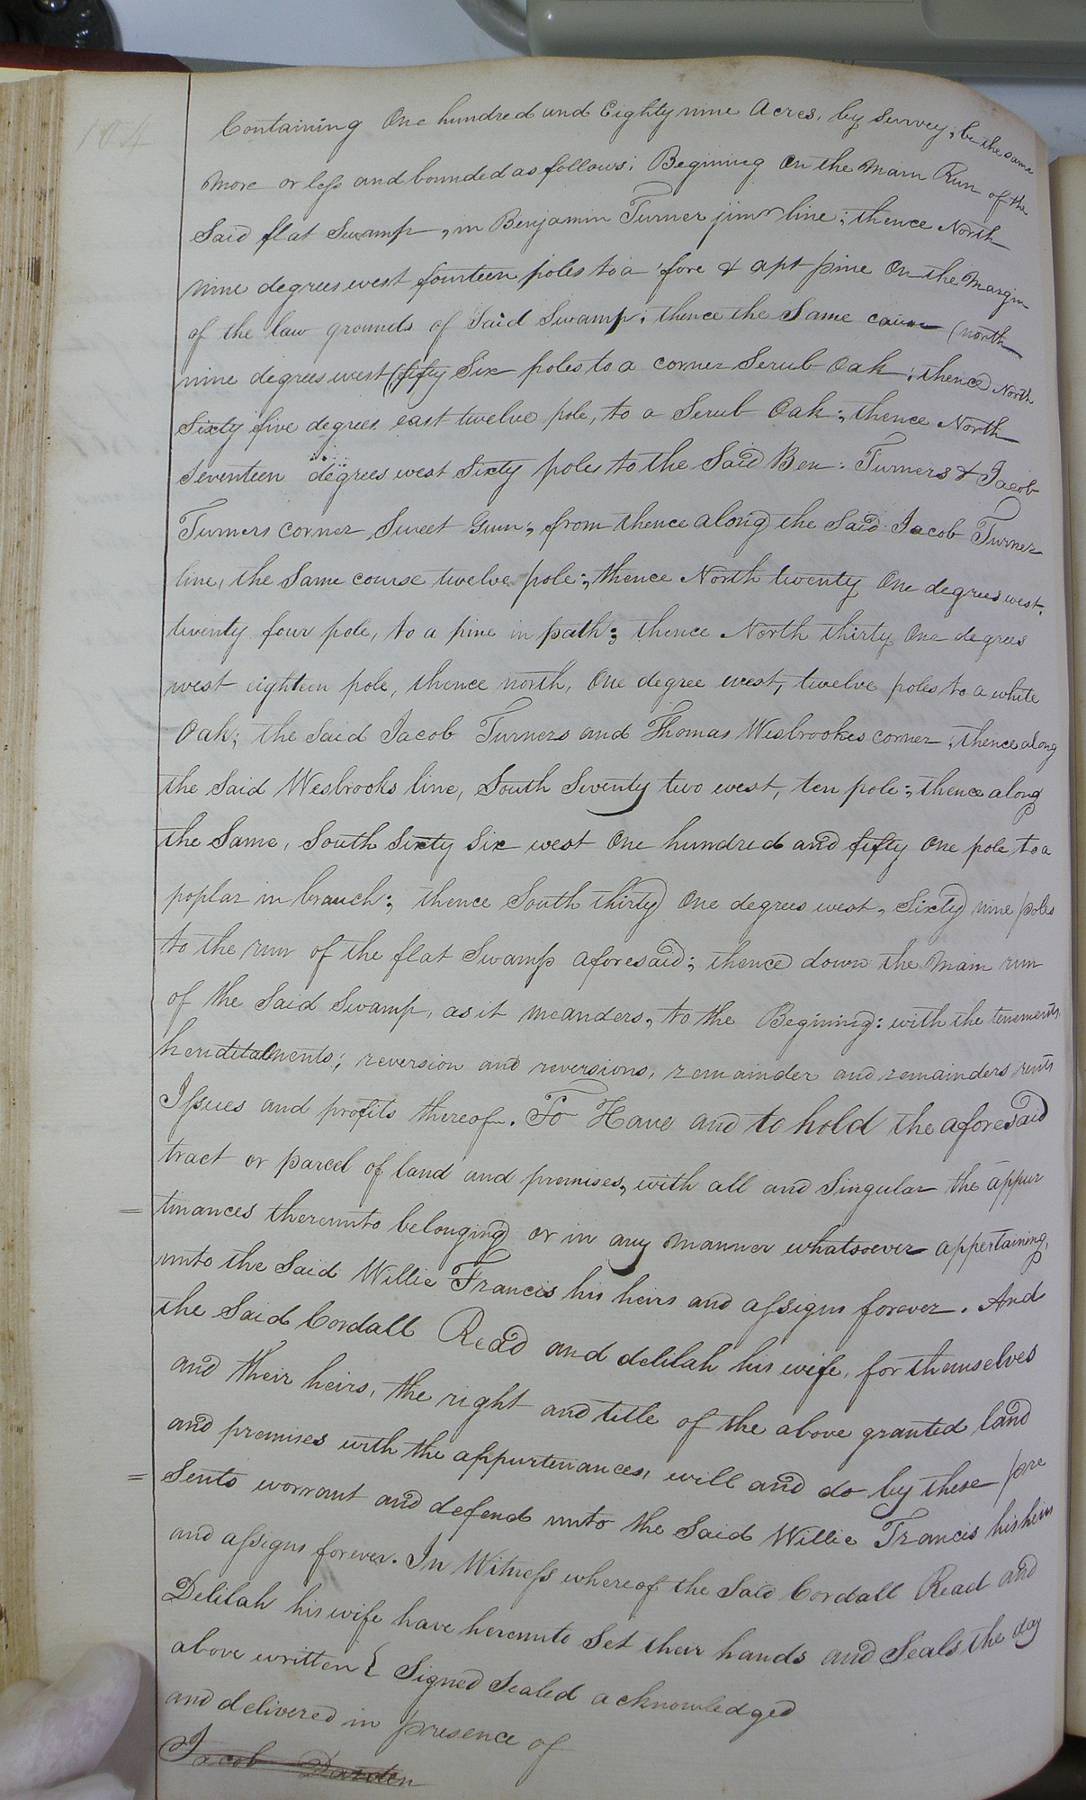 Containing One hundred and Eighty nine Acres, by Survey, be the same
More or less and bounded as follows: Begining on the Main Run of the
Said flat Swamp, in Benjamin Turner junr line; thence North
nine degrees west fourteen poles to a fore & apt pine On the Margin
of the law grounds of Said Swamp; thence the Same cause (north
nine degrees west (fifty Six poles to a corner Scrub Oak; thence North
Sixty five degrees east twelve pole, to a Scrub Oak; thence North
Seventeen degrees west Sixty poles to the Said Ben: Turners & Jacob
Turners corner, Sweet Gum; from thence along the Said Jacob Turner
line, the Same course twelve pole; thence North twenty One degrees west,
twenty four pole, to a pine in path; thence North thirty One degrees
west eighteen pole, thence north, One degree west, twelve poles to a white
Oak; the Said Jacob Turners and Thomas Wesbrookes corner; thence along
the Said Wesbrooks line, South Seventy two west, ten pole; thence along
the Same, South Sixty Six west One hundred and fifty One pole to a
poplar in branch; thence South thirty One degrees west, Sixty nine poles
to the run of the flat Swamp aforesaid; thence down the Main run
of the Said Swamp, as it meanders, to the Begining: with the tenements
heriditaments; reversion and reversions, remainder and remainders rents
Issues and profits thereof. To Have and to hold the aforesaid
tract or parcel of land and premises, with all and Singular the appur
= tinances thereunto belonging or in any Manner whatsoever appertaining,
unto the Said Willie Francis his heirs and assigns forever. And
the Said Cordall Read and delilah his wife, for themselves
and their heirs, the right and title of the above granted land
and premises with the appurtenances, will and do by these pre
= Sents warrant and defend unto the Said Willie Francis his heirs
and assigns forever. In Witness whereof the Said Cordall Read and
Delilah his wife have hereunto Set their hands and Seals the day
above written { Signed Sealed acknowledged
and delivered in presence of
Jacob Darden